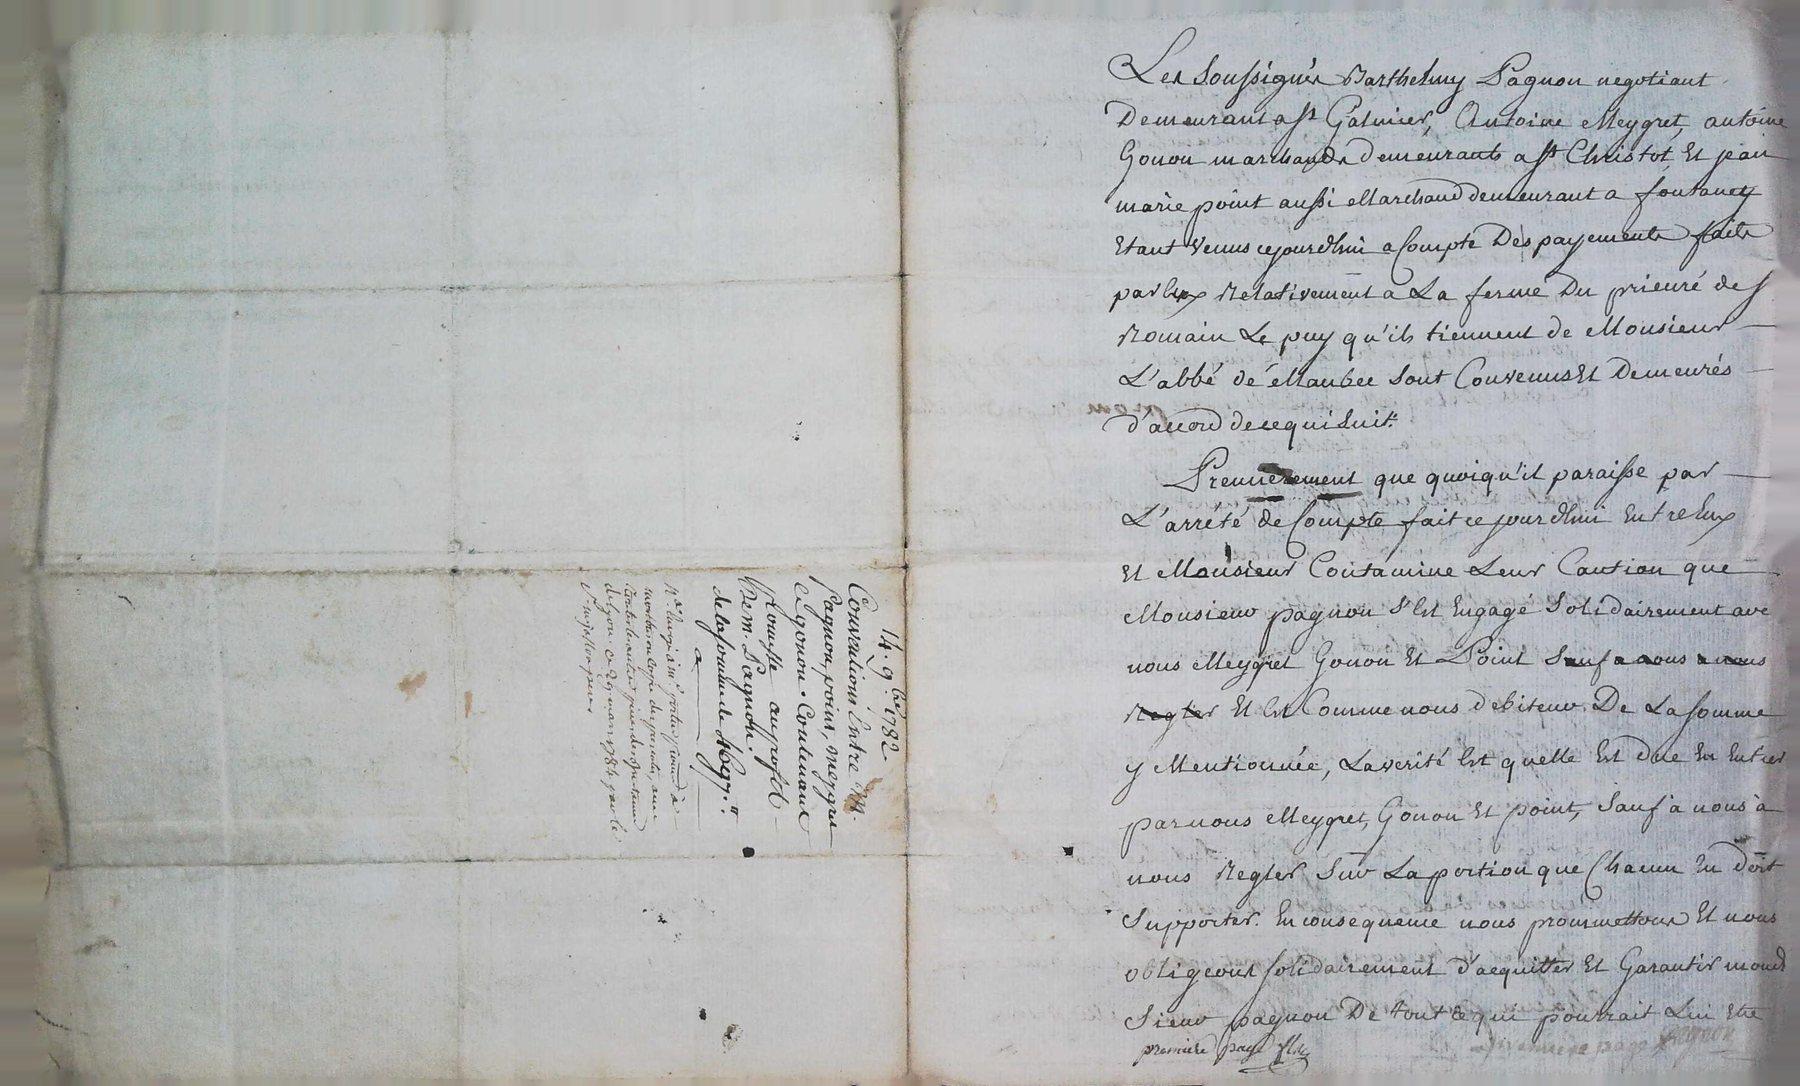 14. 9bre 1782
Conventions Entre M.
Pagnon, point, meygret
et gonon. Contenant
promesse au profit
De m. Pagnon.
de la somme de
Les Soussignés Barthelmy Pagnon negotiant
Demeurant a st Galmier, Antoine Meygret, antoine
Gonon marchands demeurants a st Christot, Et jean
marie point aussi Marchand demeurant a fontaney
Etant venus cejourdhui a Compte Des payements faits
par Eux Relativement a La ferme Du prieuré de S
Romain Le puy qu'ils tiennent de Monsieur
L'abbé de Maubec Sont Convenus Et Demeurés
d'accord de ce qui Suit.
Premierement que quoiqu'il paraisse par
L'arrété de Compte fait ce jourdhui Entre Eux
Et Monsieur Contamine Leur Caution que
Monsieur pagnon S'Est Engagé Solidairement avec
nous Meygret Gonon Et Point Sauf a nous a nous
Regler Et Est Comme nous debiteur De La somme
y Mentionnée, La verité Est quelle Est due En Entier
par nous Meygret, Gonon Et point, Sauf a nous a
nous Regler Sur La portion que Chacun En doit
Supporter. En consequence nous prommettons Et nous
obligeons solidairement d'acquitter Et Garantir mond
Sieur pagnon De tout ce qui pourrait Lui Etre
premiere page
premiere page pagnon